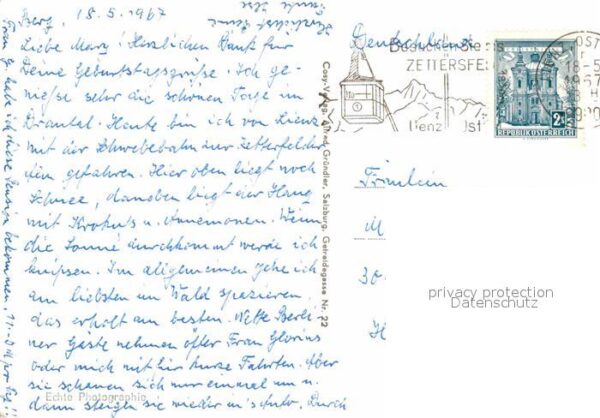 Berg, 18.5.1967
Liebe Mary! Herzlichen Dank für
Deine Geburtstagsgrüße. Ich ge-
nieße sehr die schönen Tage im
Drautal. Heute bin ich von Lienz
mit der Schwebebahn zur Zettersfelder
gefahren. Hier oben liegt noch
Schnee, daneben liegt der Hang
mit Krokus u. Annemonen. Wenn
die Sonne durchkommt werde ich
knipsen. Im allgemeinen gehe ich
am liebsten im Wald spazieren,
das erholt am besten. Nette Berli-
ner Gäste nehmen öfter Frau
oder mich mit für kurze Fahrten. Aber
sie schauen sich nur einmal um u.
dann steigen sie wieder in's Auto. Durch
Frau G. habe ich diese Pension bekommen,
Echte Photographie
Cosy-Verlag Alfred Gründler, Salzburg, Getreidegasse Nr. 22
Deutschland
Besuchen Sie das
ZETTERSFELD
Lienz Ost
OST
18-5
1967
2S
REPUBLIK ÖSTERREICH
Fräulein
M
30.
H
privacy protection
Datenschutz